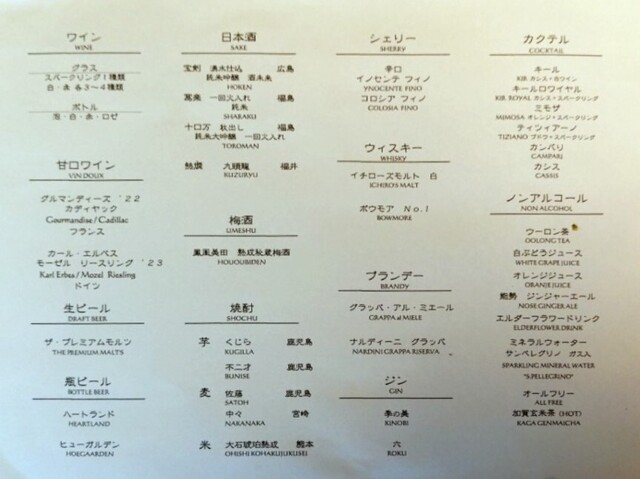 ワイン
WINE
グラス
スパークリング1種類
白・赤 各3〜4種類
ボトル
泡・白・赤・ロゼ
甘口ワイン
VIN DOUX
グルマンディーズ '22
カディヤック
Gourmandise / Cadillac
フランス
カール・エルベス
モーゼル リースリング '23
Karl Erbes / Mozel Riesling
ドイツ
生ビール
DRAFT BEER
ザ・プレミアムモルツ
THE PREMIUM MALT'S
瓶ビール
BOTTLE BEER
ハートランド
HEARTLAND
ヒューガルデン
HOEGAARDEN
日本酒
SAKE
宝剣 湧水仕込 広島
純米吟醸 酒未来
HOKEN
寫楽 一回火入れ 福島
純米
SHARAKU
十口万 秋出し 福島
純米大吟醸 一回火入れ
TOROMAN
熱燗 九頭龍 福井
KUZURYU
梅酒
UMESHU
鳳凰美田 熟成秘蔵梅酒
HOUOUBIDEN
焼酎
SHOCHU
芋 くじら 鹿児島
KUGILLA
不二才 鹿児島
BUNISE
麦 佐藤 鹿児島
SATOH
中々 宮崎
NAKANAKA
米 大石琥珀熟成 熊本
OHISHI KOHAKUJUKUSEI
シェリー
SHERRY
辛口
イノセンテ フィノ
YNOCENTE FINO
コロシア フィノ
COLOSIA FINO
ウィスキー
WHISKY
イチローズモルト 白
ICHIRO'S MALT
ボウモア No.1
BOWMORE
ブランデー
BRANDY
グラッパ・アル・ミエール
GRAPPA al MIELE
ナルディーニ グラッパ
NARDINI GRAPPA RISERVA
ジン
GIN
季の美
KINOBI
六
ROKU
カクテル
COCKTAIL
キール
KIR カシス・白ワイン
キールロワイヤル
KIR ROYAL カシス・スパークリング
ミモザ
MIMOSA オレンジ・スパークリング
ティツィアーノ
TIZIANO ブドウ・スパークリング
カンパリ
CAMPARI
カシス
CASSIS
ノンアルコール
NON ALCOHOL
ウーロン茶
OOLONG TEA
白ぶどうジュース
WHITE GRAPE JUICE
オレンジジュース
ORANJE JUICE
能勢 ジンジャーエール
NOSE GINGER ALE
エルダーフラワードリンク
ELDERFLOWER DRINK
ミネラルウォーター
サンペレグリノ ガス入
SPARKLING MINERAL WATER
"S.PELLEGRINO"
オールフリー
ALL FREE
加賀玄米茶 (HOT)
KAGA GENMAICHA